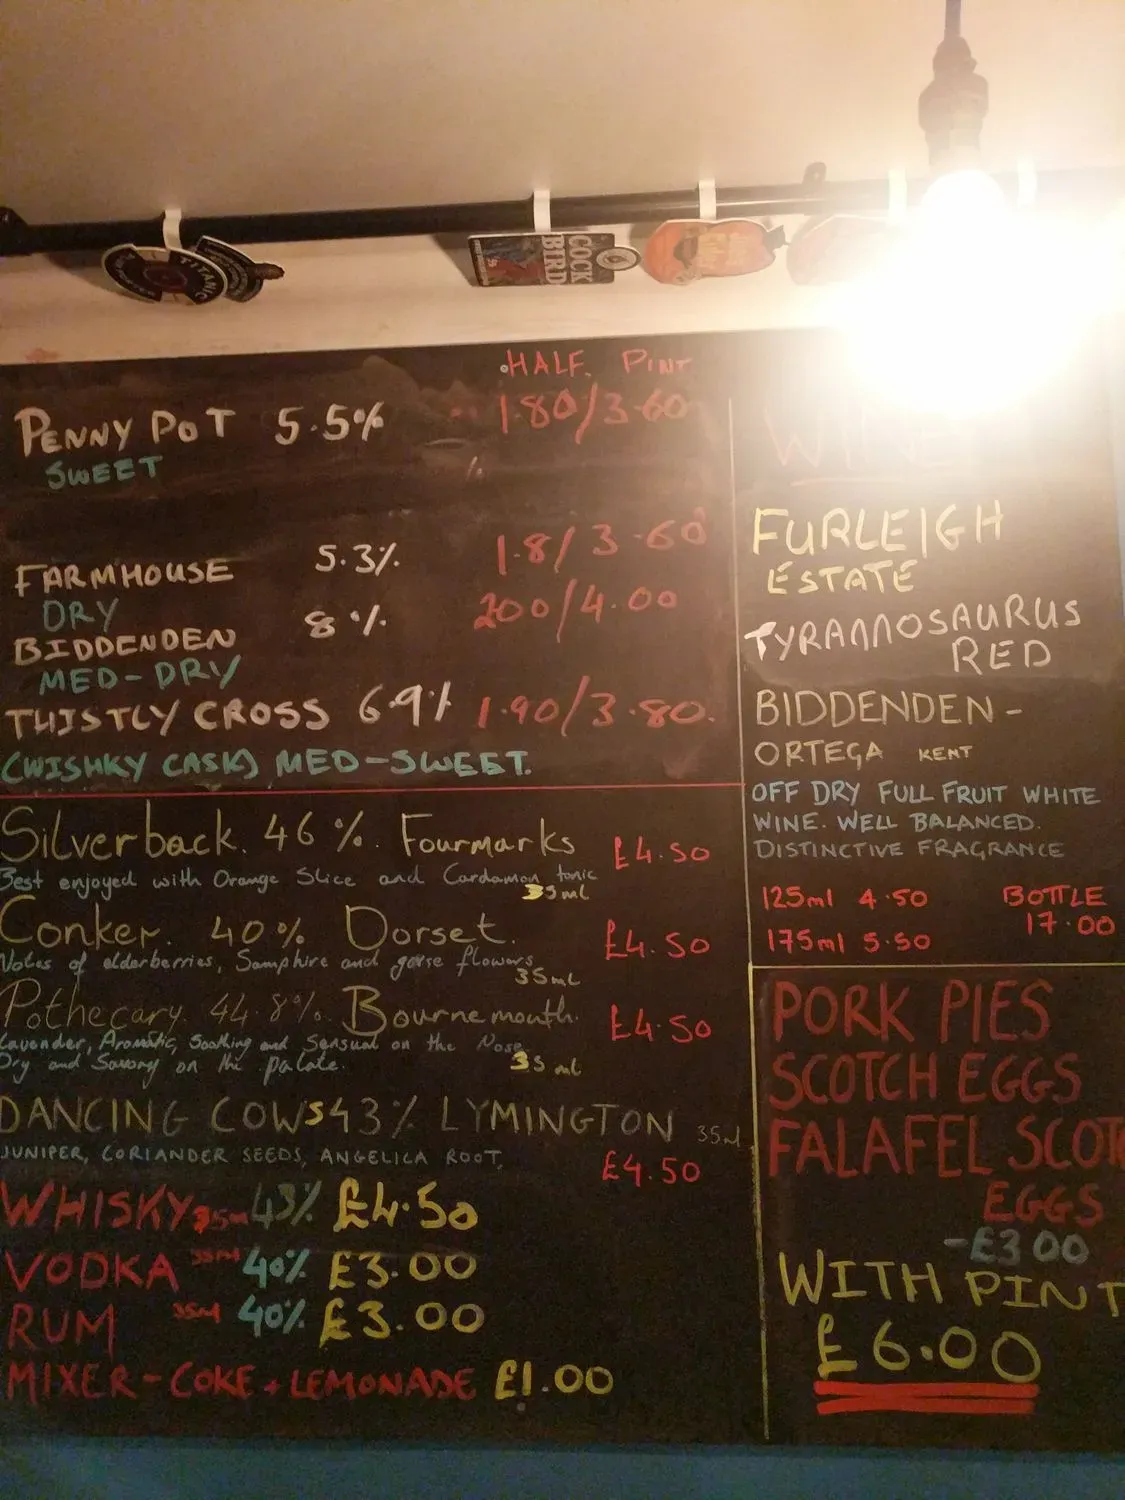 TITANIC
COCK
BIRD
HALF PINT
PENNY POT 5.5% 1.80/3.60
SWEET
FARMHOUSE 5.3% 1.8/3.60
DRY
BIDDENDEN 8% 200/4.00
MED-DRY
THISTLY CROSS 6.9% 1.90/3.80.
(WISHKY CASK) MED-SWEET.
Silverback. 46%. Fourmarks £4.50
Best enjoyed with Orange Slice and Cardamon tonic
35ml
Conker. 40% Dorset. £4.50
Notes of elderberries, Samphire and gorse flowers
35ml
Pothecary. 44.8%. Bournemouth. £4.50
Lavender, Aromatic, Soothing and Sensual on the Nose
Dry and Savory on the palate. 35ml
DANCING COWS 43% LYMINGTON 35ml
JUNIPER, CORIANDER SEEDS, ANGELICA ROOT, £4.50
WHISKY 35ml 43% £4.50
VODKA 35ml 40% £3.00
RUM 35ml 40% £3.00
MIXER - COKE + LEMONADE £1.00
WINE
FURLEIGH
ESTATE
TYRANNOSAURUS
RED
BIDDENDEN -
ORTEGA KENT
OFF DRY FULL FRUIT WHITE
WINE. WELL BALANCED.
DISTINCTIVE FRAGRANCE
125ml 4.50 BOTTLE
175ml 5.50 17.00
PORK PIES
SCOTCH EGGS
FALAFEL SCOT
EGGS
-£3 00
WITH PINT
£6.00